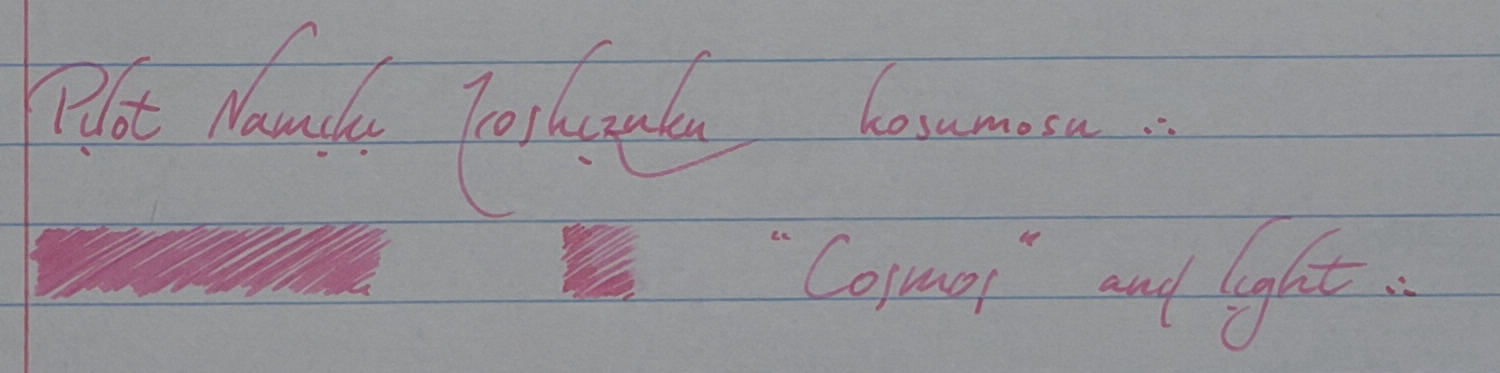 Pilot Namiki Iroshizuku kosumosu ∴
“Cosmos“ and light ∴